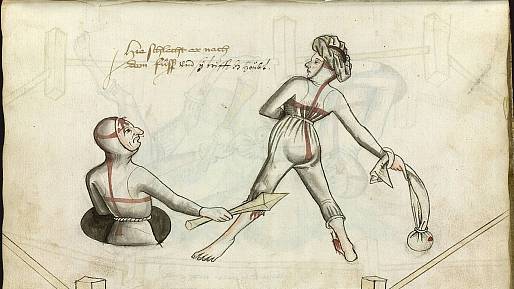 Hie schlecht er nach
dem fuß und sy trifft in houbt.